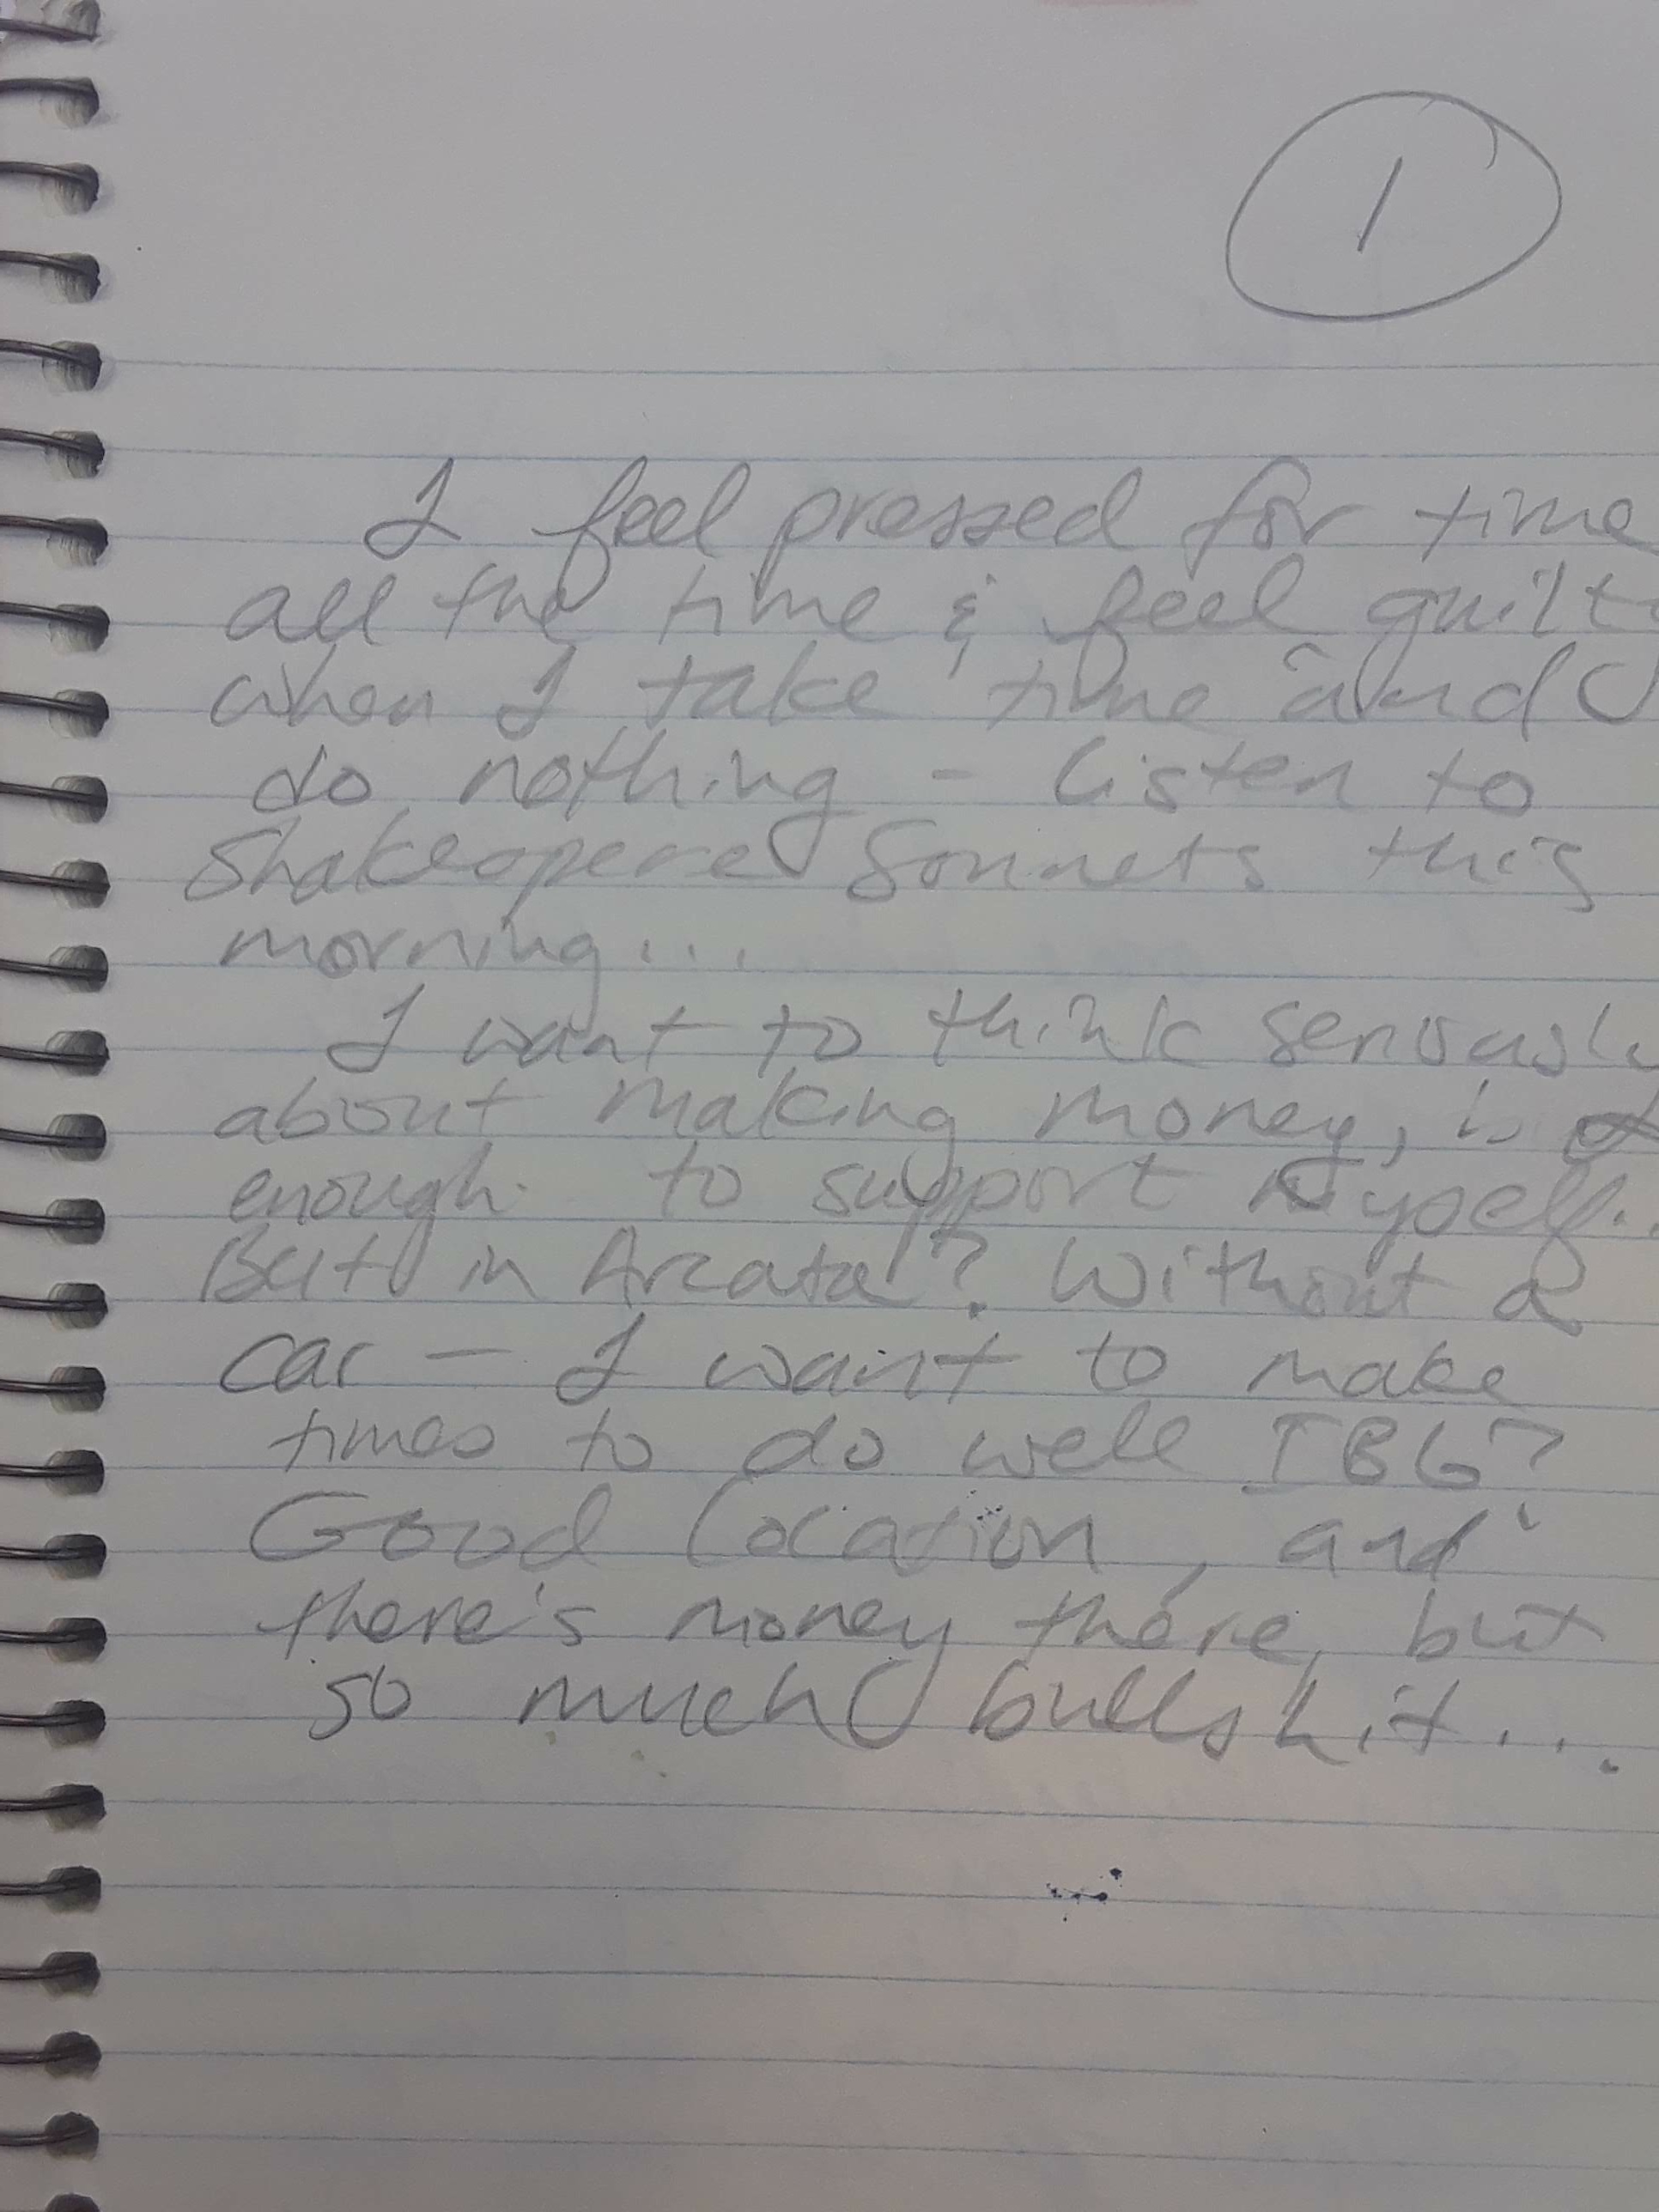 1
I feel pressed for time
all the time & feel guilty
when I take time and
do nothing - listen to
Shakespere Sonnets this
morning...
I want to think seriously
about making money,
enough to support myself..
But in Arcata? Without a
car - I want to make
times to do well IBG?
Good location, and
there's money there, but
so much bullshit...